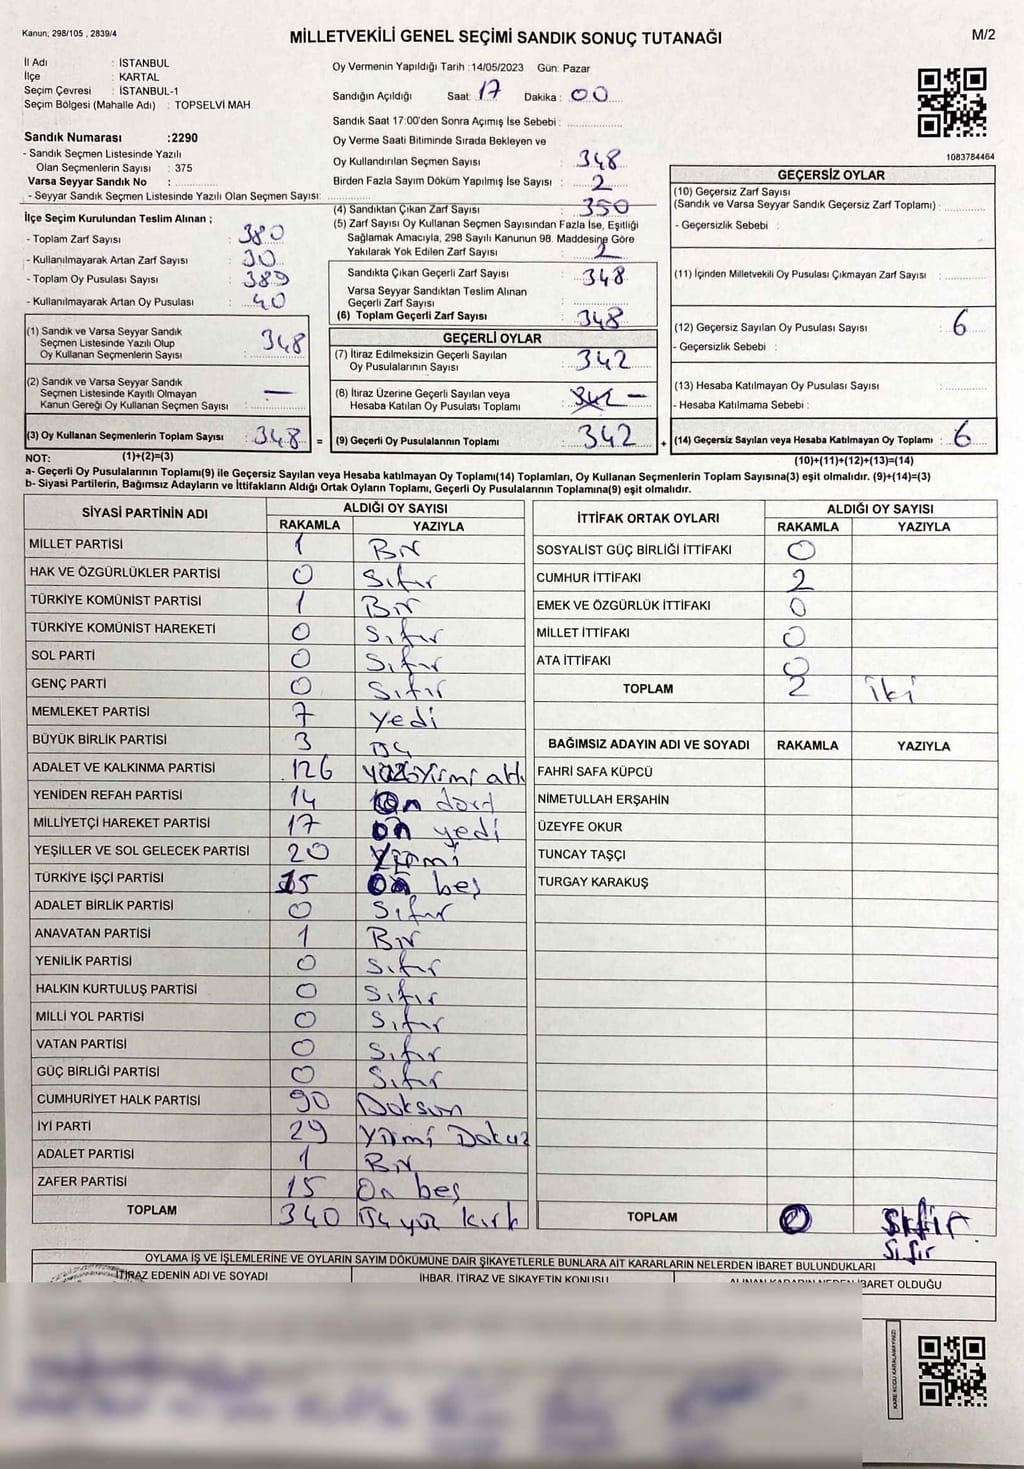 Kanun; 298/105 , 2839/4
MİLLETVEKİLİ GENEL SEÇİMİ SANDIK SONUÇ TUTANAĞI
M/2
İl Adı : İSTANBUL
İlçe : KARTAL
Seçim Çevresi : İSTANBUL-1
Seçim Bölgesi (Mahalle Adı) : TOPSELVİ MAH.
Sandık Numarası :2290
- Sandık Seçmen Listesinde Yazılı
Olan Seçmenlerin Sayısı : 375
Varsa Seyyar Sandık No :
- Seyyar Sandık Seçmen Listesinde Yazılı Olan Seçmen Sayısı:
İlçe Seçim Kurulundan Teslim Alınan ;
- Toplam Zarf Sayısı : 380
- Kullanılmayarak Artan Zarf Sayısı : 30
- Toplam Oy Pusulası Sayısı : 389
- Kullanılmayarak Artan Oy Pusulası : 40
(1) Sandık ve Varsa Seyyar Sandık
Seçmen Listesinde Yazılı Olup
Oy Kullanan Seçmenlerin Sayısı : 348
(2) Sandık ve Varsa Seyyar Sandık
Seçmen Listesinde Kayıtlı Olmayan
Kanun Gereği Oy Kullanan Seçmen Sayısı : —
(3) Oy Kullanan Seçmenlerin Toplam Sayısı : 348 =
Oy Vermenin Yapıldığı Tarih :14/05/2023 Gün: Pazar
Sandığın Açıldığı Saat: 17 Dakika : 00
Sandık Saat 17:00'den Sonra Açımış İse Sebebi :
Oy Verme Saati Bitiminde Sırada Bekleyen ve
Oy Kullandırılan Seçmen Sayısı : 348
Birden Fazla Sayım Döküm Yapılmış İse Sayısı : 2
(4) Sandıktan Çıkan Zarf Sayısı : 350
(5) Zarf Sayısı Oy Kullanan Seçmen Sayısından Fazla İse, Eşitliği
Sağlamak Amacıyla, 298 Sayılı Kanunun 98. Maddesine Göre
Yakılarak Yok Edilen Zarf Sayısı : 2
Sandıkta Çıkan Geçerli Zarf Sayısı : 348
Varsa Seyyar Sandıktan Teslim Alınan
Geçerli Zarf Sayısı :
(6) Toplam Geçerli Zarf Sayısı : 348
GEÇERLİ OYLAR
(7) İtiraz Edilmeksizin Geçerli Sayılan
Oy Pusulalarının Sayısı : 342
(8) İtiraz Üzerine Geçerli Sayılan veya
Hesaba Katılan Oy Pusulası Toplamı : 342 —
(9) Geçerli Oy Pusulalarının Toplamı : 342 +
1083784464
GEÇERSİZ OYLAR
(10) Geçersiz Zarf Sayısı
(Sandık ve Varsa Seyyar Sandık Geçersiz Zarf Toplamı) :
- Geçersizlik Sebebi :
(11) İçinden Milletvekili Oy Pusulası Çıkmayan Zarf Sayısı :
(12) Geçersiz Sayılan Oy Pusulası Sayısı : 6
- Geçersizlik Sebebi :
(13) Hesaba Katılmayan Oy Pusulası Sayısı :
- Hesaba Katılmama Sebebi :
(14) Geçersiz Sayılan veya Hesaba Katılmayan Oy Toplamı : 6
NOT: (1)+(2)=(3) (10)+(11)+(12)+(13)=(14)
a- Geçerli Oy Pusulalarının Toplamı(9) ile Geçersiz Sayılan veya Hesaba katılmayan Oy Toplamı(14) Toplamları, Oy Kullanan Seçmenlerin Toplam Sayısına(3) eşit olmalıdır. (9)+(14)=(3)
b- Siyasi Partilerin, Bağımsız Adayların ve İttifakların Aldığı Ortak Oyların Toplamı, Geçerli Oy Pusulalarının Toplamına(9) eşit olmalıdır.
SİYASİ PARTİNİN ADI ALDIĞI OY SAYISI
RAKAMLA YAZIYLA
MİLLET PARTİSİ 1 Bir
HAK VE ÖZGÜRLÜKLER PARTİSİ 0 Sıfır
TÜRKİYE KOMÜNİST PARTİSİ 1 Bir
TÜRKİYE KOMÜNİST HAREKETİ 0 Sıfır
SOL PARTİ 0 Sıfır
GENÇ PARTİ 0 Sıfır
MEMLEKET PARTİSİ 7 yedi
BÜYÜK BİRLİK PARTİSİ 3 üç
ADALET VE KALKINMA PARTİSİ 126 yüzyirmi altı
YENİDEN REFAH PARTİSİ 14 on dört
MİLLİYETÇİ HAREKET PARTİSİ 17 on yedi
YEŞİLLER VE SOL GELECEK PARTİSİ 20 Yirmi
TÜRKİYE İŞÇİ PARTİSİ 15 on beş
ADALET BİRLİK PARTİSİ 0 Sıfır
ANAVATAN PARTİSİ 1 Bir
YENİLİK PARTİSİ 0 Sıfır
HALKIN KURTULUŞ PARTİSİ 0 Sıfır
MİLLİ YOL PARTİSİ 0 Sıfır
VATAN PARTİSİ 0 Sıfır
GÜÇ BİRLİĞİ PARTİSİ 0 Sıfır
CUMHURİYET HALK PARTİSİ 90 Doksan
İYİ PARTİ 29 Yirmi Dokuz
ADALET PARTİSİ 1 Bir
ZAFER PARTİSİ 15 On beş
TOPLAM 340 üçyüz kırk
İTTİFAK ORTAK OYLARI ALDIĞI OY SAYISI
RAKAMLA YAZIYLA
SOSYALİST GÜÇ BİRLİĞİ İTTİFAKI 0
CUMHUR İTTİFAKI 2
EMEK VE ÖZGÜRLÜK İTTİFAKI 0
MİLLET İTTİFAKI 0
ATA İTTİFAKI 0
TOPLAM 2 iki
BAĞIMSIZ ADAYIN ADI VE SOYADI RAKAMLA YAZIYLA
FAHRİ SAFA KÜPCÜ
NİMETULLAH ERŞAHİN
ÜZEYFE OKUR
TUNCAY TAŞÇI
TURGAY KARAKUŞ
TOPLAM 0 Sıfır
Sıfır
OYLAMA İŞ VE İŞLEMLERİNE VE OYLARIN SAYIM DÖKÜMÜNE DAİR ŞİKAYETLERLE BUNLARA AİT KARARLARIN NELERDEN İBARET BULUNDUKLARI
İTİRAZ EDENİN ADI VE SOYADI İHBAR, İTİRAZ VE ŞİKAYETİN KONUSU ALINAN KARARIN NEDEN İBARET OLDUĞU
KARE KODU KARALAMAYINIZ!